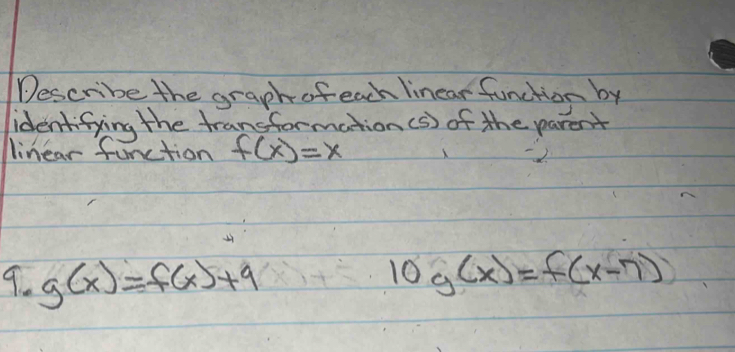 Describe the graph of each linear function by
identifying the transformation(s) of the parent
linear function f(x)=x
9. g(x)=f(x)+9 10 g(x)=f(x-7)